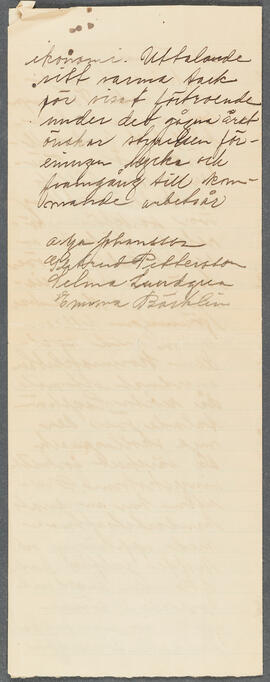 ekonomi. Uttalande
sitt varma tack
för visat förtroende
under det gågna året
önskar styrelsen för-
eningen lycka och
framgång till kom-
mande arbetsår
Maja Johansson
Gertrud Pettersson
Selma Lundgren
Emma Bäcklin